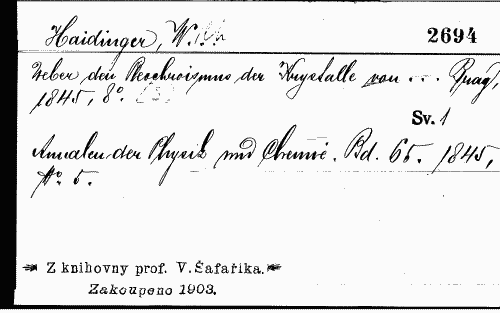 Haidinger, W.
2694
Ueber den Pleochroismus der Krystalle von ... Prag,
1845, 8º.
Sv. 1
Annalen der Physik und Chemie. Bd. 65. 1845,
Nº 5.
Z knihovny prof. V. Šafaříka.
Zakoupeno 1903.